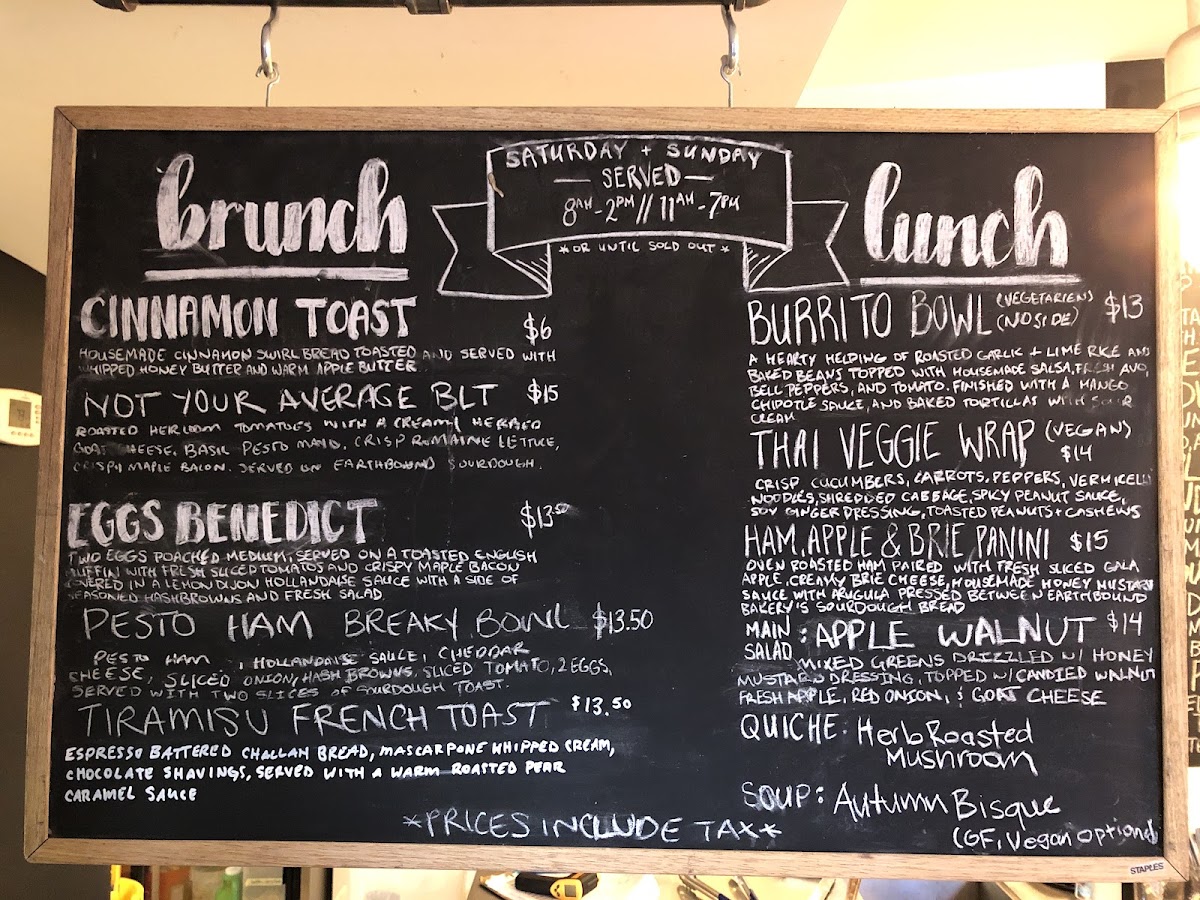 SATURDAY + SUNDAY
— SERVED —
8AM - 2PM // 11AM - 7PM
*OR UNTIL SOLD OUT*
brunch
CINNAMON TOAST $6
HOUSEMADE CINNAMON SWIRL BREAD TOASTED AND SERVED WITH
WHIPPED HONEY BUTTER AND WARM APPLE BUTTER
NOT YOUR AVERAGE BLT $15
ROASTED HEIRLOOM TOMATOES WITH A CREAMY HERBED
GOAT CHEESE, BASIL PESTO MAYO, CRISP ROMAINE LETTUCE,
CRISPY MAPLE BACON. SERVED ON EARTHBOUND SOURDOUGH.
EGGS BENEDICT $13.50
TWO EGGS POACHED MEDIUM, SERVED ON A TOASTED ENGLISH
MUFFIN WITH FRESH SLICED TOMATOS AND CRISPY MAPLE BACON
COVERED IN A LEMON DIJON HOLLANDAISE SAUCE WITH A SIDE OF
SEASONED HASHBROWNS AND FRESH SALAD.
PESTO HAM BREAKY BOWL $13.50
PESTO HAM , HOLLANDAISE SAUCE, CHEDDAR
CHEESE, SLICED ONION, HASH BROWNS, SLICED TOMATO, 2 EGGS,
SERVED WITH TWO SLICES OF SOURDOUGH TOAST.
TIRAMISU FRENCH TOAST $13.50
ESPRESSO BATTERED CHALLAH BREAD, MASCARPONE WHIPPED CREAM,
CHOCOLATE SHAVINGS, SERVED WITH A WARM ROASTED PEAR
CARAMEL SAUCE
lunch
BURRITO BOWL (VEGETARIEN) (NO SIDE) $13
A HEARTY HELPING OF ROASTED GARLIC + LIME RICE AND
BAKED BEANS TOPPED WITH HOUSEMADE SALSA, FRESH AVO,
BELL PEPPERS, AND TOMATO. FINISHED WITH A MANGO
CHIPOTLE SAUCE, AND BAKED TORTILLAS WITH SOUR
CREAM
THAI VEGGIE WRAP (VEGAN) $14
CRISP CUCUMBERS, CARROTS, PEPPERS, VERMICELLI
NOODLES, SHREDDED CABBAGE, SPICY PEANUT SAUCE,
SOY GINGER DRESSING, TOASTED PEANUTS + CASHEWS
HAM, APPLE & BRIE PANINI $15
OVEN ROASTED HAM PAIRED WITH FRESH SLICED GALA
APPLE, CREAMY BRIE CHEESE, HOUSEMADE HONEY MUSTARD
SAUCE WITH ARUGULA PRESSED BETWEEN EARTHBOUND
BAKERY'S SOURDOUGH BREAD
MAIN SALAD: APPLE WALNUT $14
MIXED GREENS DRIZZLED W/ HONEY
MUSTARD DRESSING, TOPPED W/ CANDIED WALNUT
FRESH APPLE, RED ONION, & GOAT CHEESE
QUICHE: Herb Roasted
Mushroom
SOUP: Autumn Bisque
(GF, Vegan Optional)
*PRICES INCLUDE TAX*
STAPLES